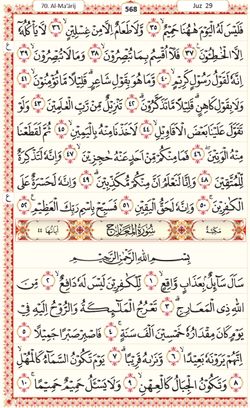 70. Al-Ma'ârij 568 Juz 29
فَلَيْسَ لَهُ الْيَوْمَ هٰهُنَا حَمِيْمٌ ٣٥ وَّلَا طَعَامٌ اِلَّا مِنْ غِسْلِيْنٍ ٣٦ لَّا يَأْكُلُهٗٓ
اِلَّا الْخٰطِـُٔوْنَ ٣٧ فَلَآ اُقْسِمُ بِمَا تُبْصِرُوْنَ ٣٨ وَمَا لَا تُبْصِرُوْنَ ٣٩
اِنَّهٗ لَقَوْلُ رَسُوْلٍ كَرِيْمٍ ٤٠ وَّمَا هُوَ بِقَوْلِ شَاعِرٍ قَلِيْلًا مَّا تُؤْمِنُوْنَ ٤١
وَلَا بِقَوْلِ كَاهِنٍ قَلِيْلًا مَّا تَذَكَّرُوْنَ ٤٢ تَنْزِيْلٌ مِّنْ رَّبِّ الْعٰلَمِيْنَ ٤٣ وَلَوْ
تَقَوَّلَ عَلَيْنَا بَعْضَ الْاَقَاوِيْلِ ٤٤ لَاَخَذْنَا مِنْهُ بِالْيَمِيْنِ ٤٥ ثُمَّ لَقَطَعْنَا
مِنْهُ الْوَتِيْنَ ٤٦ فَمَا مِنْكُمْ مِّنْ اَحَدٍ عَنْهُ حٰجِزِيْنَ ٤٧ وَاِنَّهٗ لَتَذْكِرَةٌ
لِّلْمُتَّقِيْنَ ٤٨ وَاِنَّا لَنَعْلَمُ اَنَّ مِنْكُمْ مُّكَذِّبِيْنَ ٤٩ وَاِنَّهٗ لَحَسْرَةٌ عَلَى
الْكٰفِرِيْنَ ٥٠ وَاِنَّهٗ لَحَقُّ الْيَقِيْنِ ٥١ فَسَبِّحْ بِاسْمِ رَبِّكَ الْعَظِيْمِ ٥٢
مَكِّيَّةٌ سُوْرَةُ الْمَعَارِجِ اٰيَاتُهَا ٤٤
بِسْمِ اللّٰهِ الرَّحْمٰنِ الرَّحِيْمِ
سَاَلَ سَآئِلٌۢ بِعَذَابٍ وَّاقِعٍ ١ لِّلْكٰفِرِيْنَ لَيْسَ لَهٗ دَافِعٌ ٢ مِّنَ
اللّٰهِ ذِى الْمَعَارِجِ ٣ تَعْرُجُ الْمَلٰٓئِكَةُ وَالرُّوْحُ اِلَيْهِ فِيْ
يَوْمٍ كَانَ مِقْدَارُهٗ خَمْسِيْنَ اَلْفَ سَنَةٍ ٤ فَاصْبِرْ صَبْرًا جَمِيْلًا ٥
اِنَّهُمْ يَرَوْنَهٗ بَعِيْدًا ٦ وَّنَرٰىهُ قَرِيْبًا ٧ يَوْمَ تَكُوْنُ السَّمَآءُ كَالْمُهْلِ
٨ وَتَكُوْنُ الْجِبَالُ كَالْعِهْنِ ٩ وَلَا يَسْـَٔلُ حَمِيْمٌ حَمِيْمًا ١٠